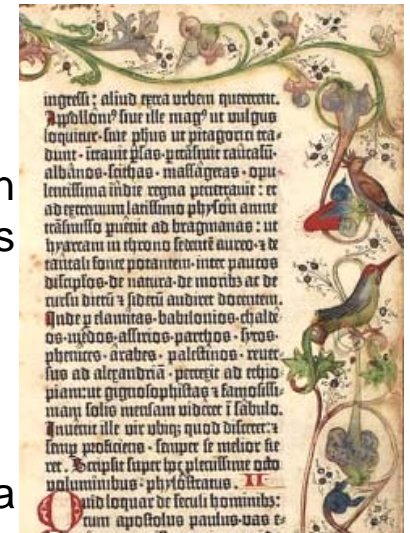 n
s
a
ingressi : aliud extra urbem quererent.
Appolloni⁹ siue ille mag⁹ ut uulgus
loquitur · siue phus ut pitagorici tra-
dunt · ītrauit p̄sas · p̄trāsiuit caucasū ·
albanos · scithas · massagetas · opu-
lentissima indie regna penetrauit : et
ad extremum latissimo physon amne
trāsmisso puenit ad bragmanas : ut
hyarcam in throno sedentē aureo · ⁊ de
tantali fonte potantem · inter paucos
discip̄los · de natura · de moribꝫ ac de
cursu dierū ⁊ siderū audiret docentem.
Inde p elamitas · babilonios · chalde-
os · medos · assirios · parthos · syros ·
phenices · arabes · palestinos · reuer-
sus ad alexandriā · perrexit ad ethio-
piam : ut gignosophistas ⁊ famosissi-
mam solis mensam uideret ī sabulo.
Inuenit ille uir ubiqꝫ quod disceret : ⁊
semp proficiens · semper se melior fie-
ret. Scripsit super hoc plenissime octo
uoluminibus : phylostratus. II
Quid loquar de seculi hominibꝫ :
cum apostolus paulus · uas e-